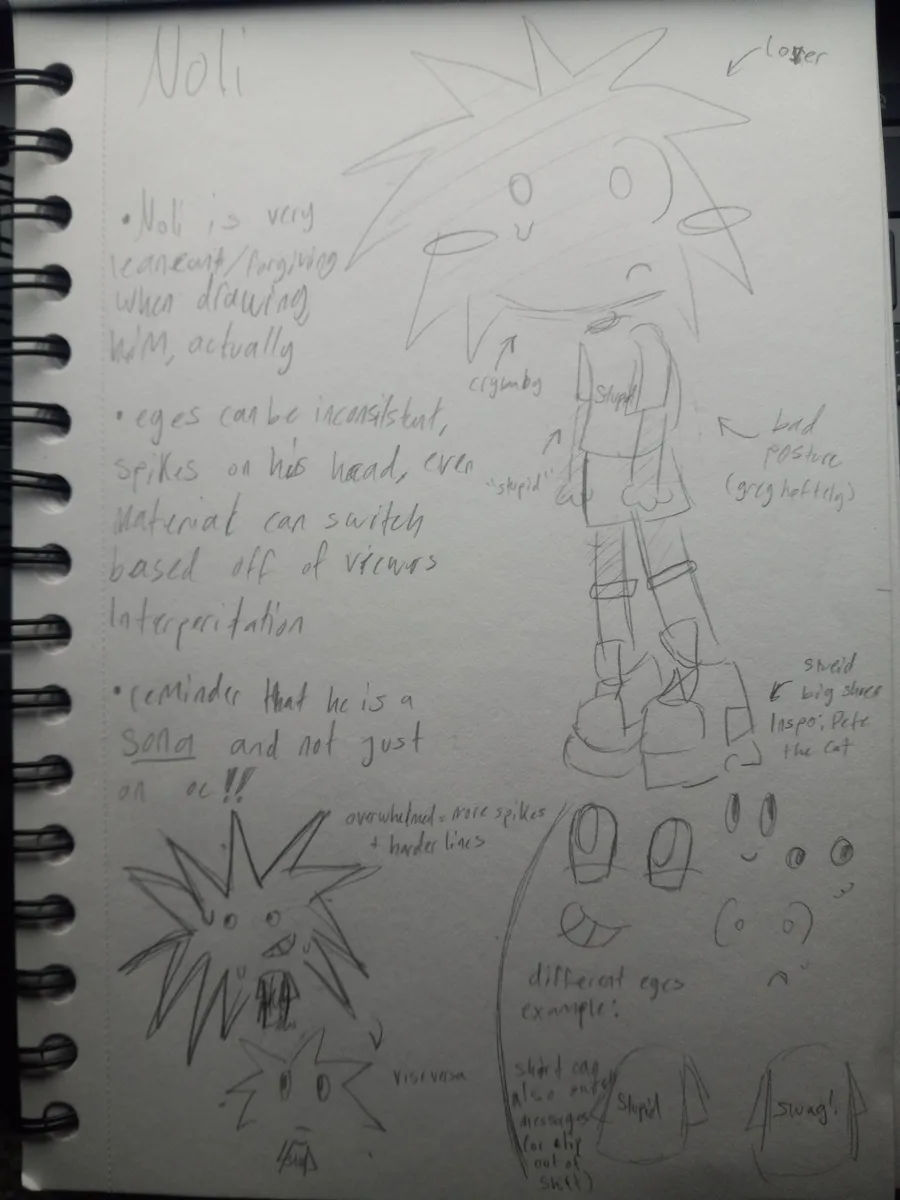 Noli
loser
• Noli is very
leaneant/forgiving
when drawing
him, actually
crymby
Stupid
"stupid"
bad
posture
(greg heffely)
• eyes can be inconsistent,
spikes on his head, even
Material can switch
based off of viewrs
Interperitation
stupid
big shoes
Inspo: Pete
the cat
• reminder that he is a
sona and not just
an oc!!
overwhelmed = more spikes
+ harder lines
different eyes
example:
viseversa
shirt can
also
messages
(or slip
out of
Stupid
Swag!